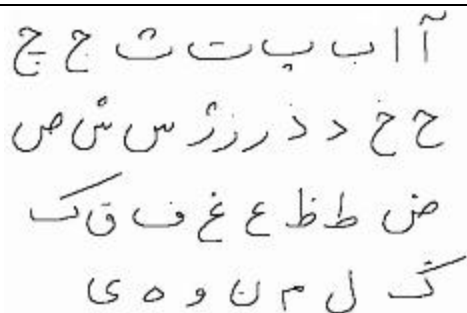 آ ا ب پ ت ث ج چ
ح خ د ذ ر ز ژ س ش ص
ض ط ظ ع غ ف ق ک
گ ل م ن و ه ی